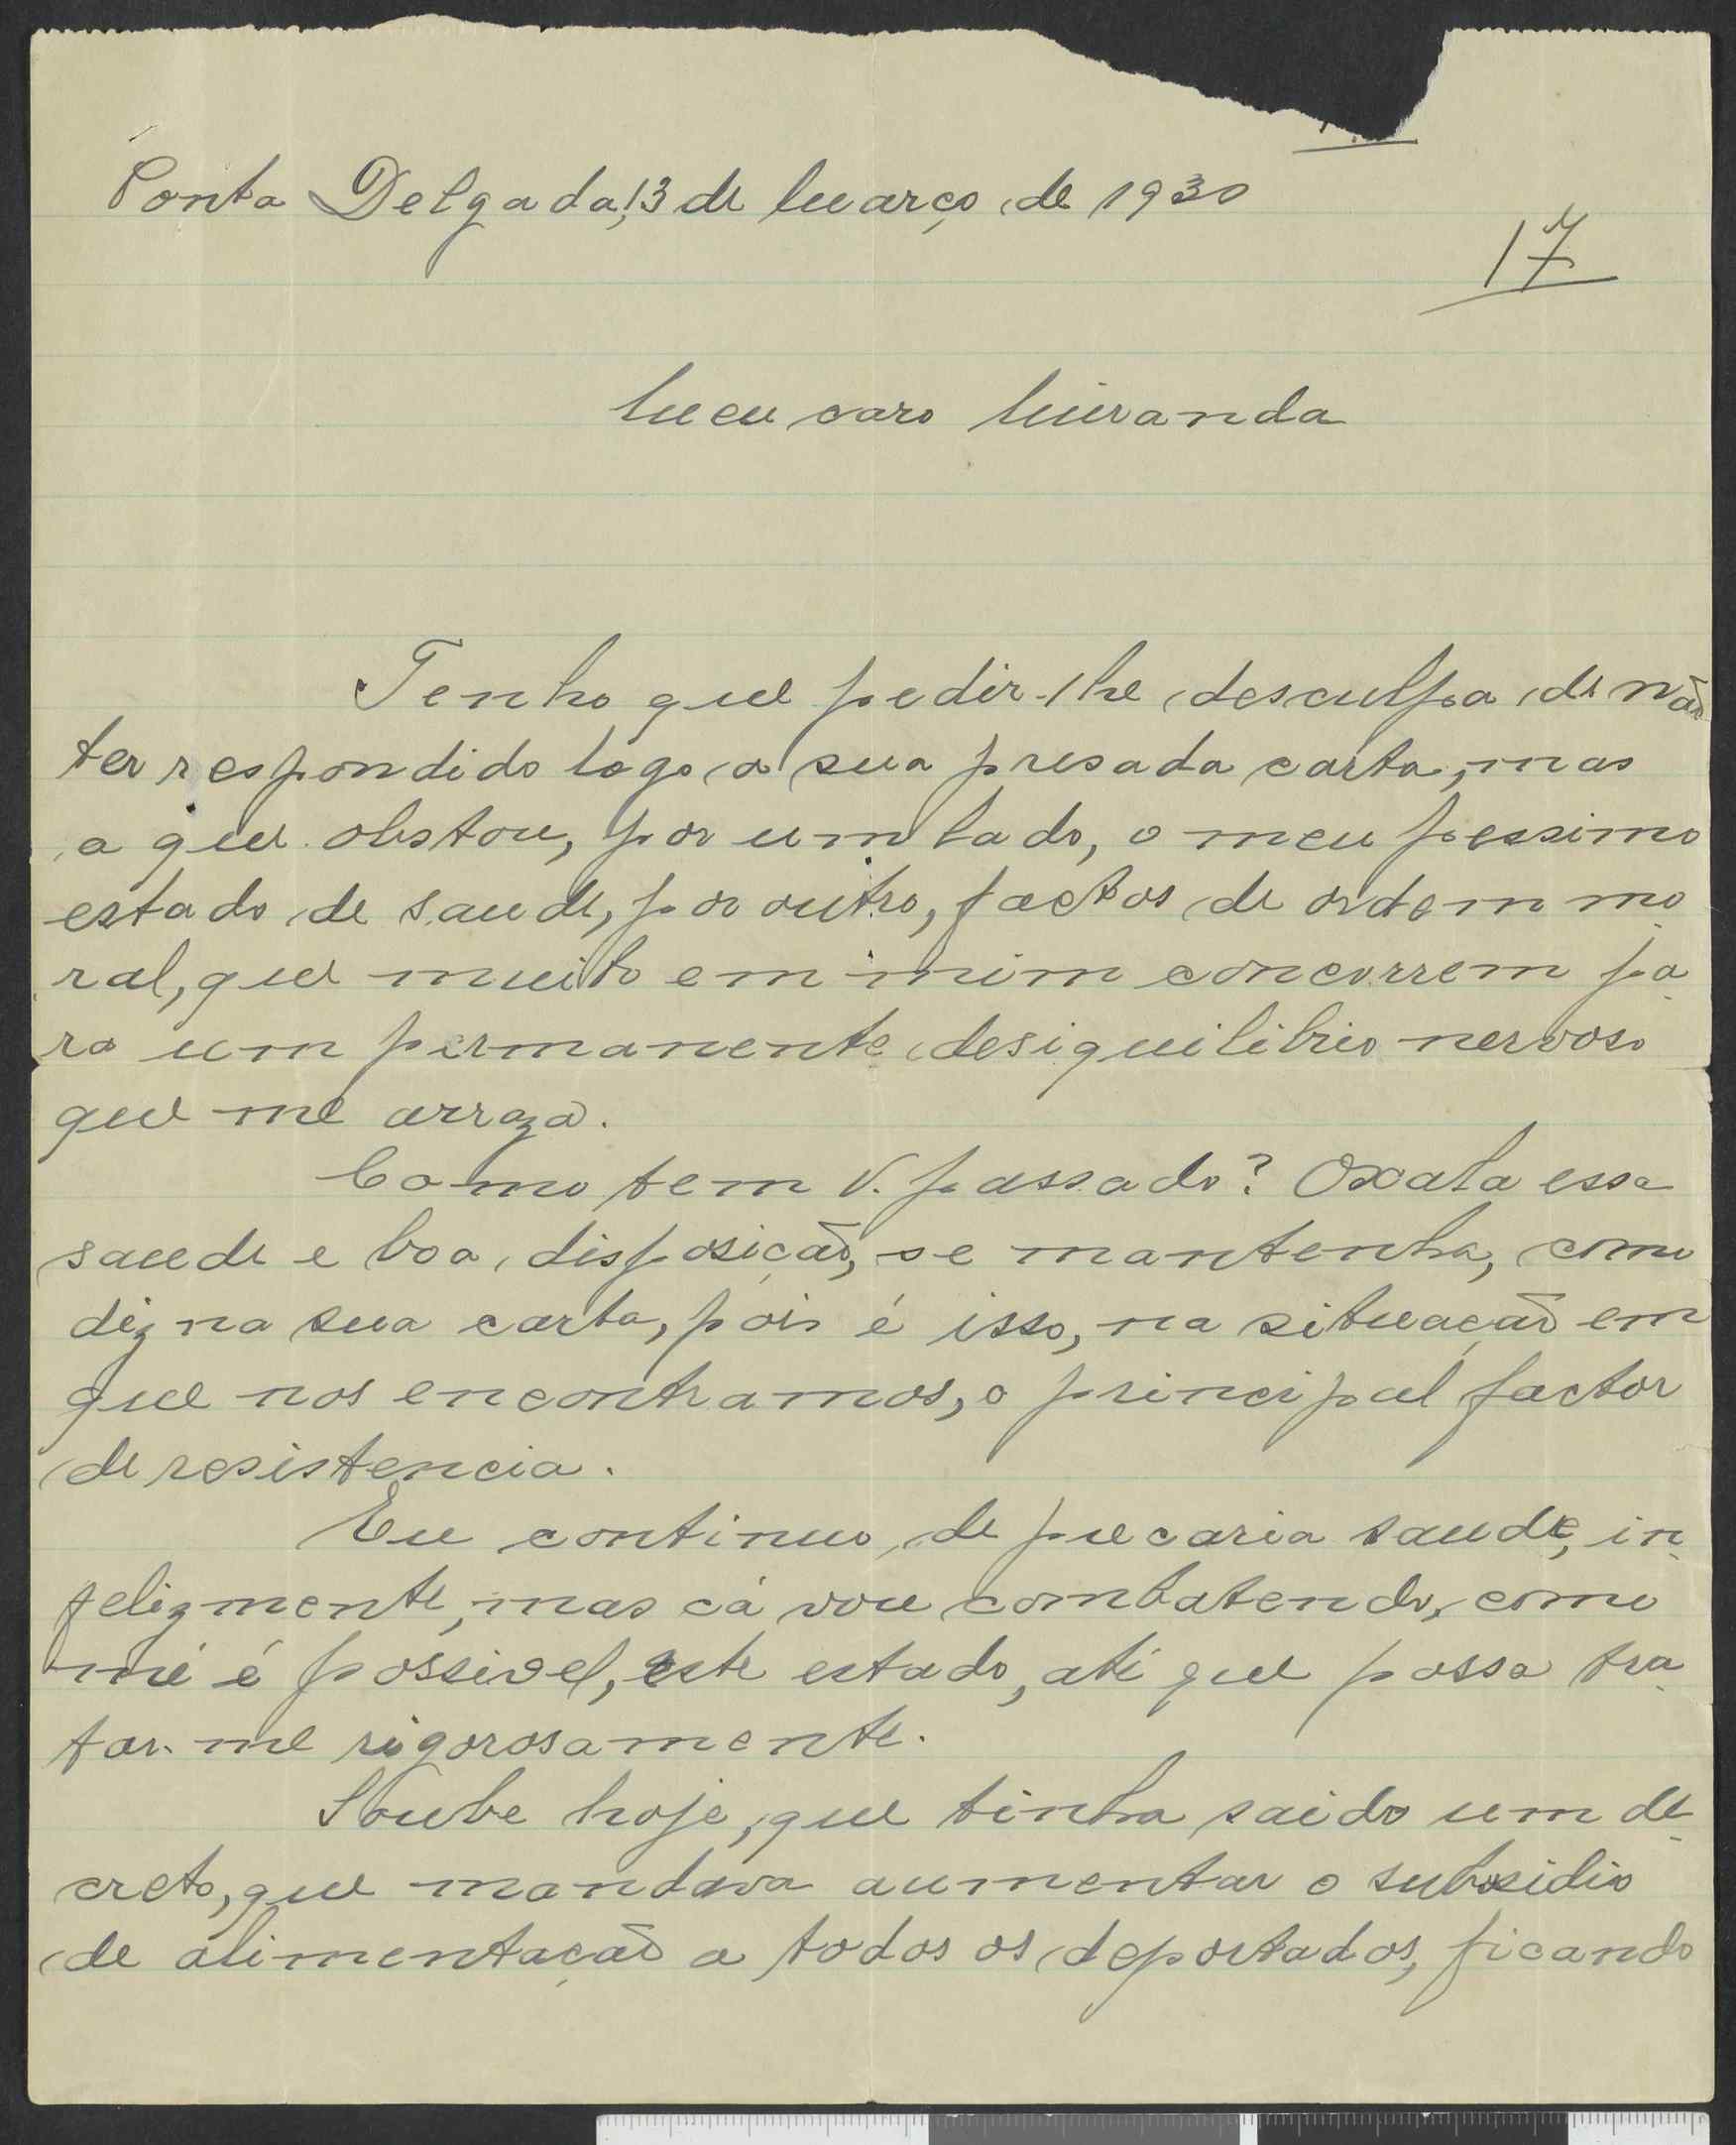 Ponta Delgada, 13 de Março de 1930
17
Meu caro Miranda
Tenho que pedir-lhe desculpa de não
ter respondido logo a sua presada carta, mas
a que obstou, por um lado, o meu pessimo
estado de saude, por outro, factos de ordem mo-
ral, que muito em mim concorrem pa-
ra um permanente desiquilibrio nervoso
que me arraza.
Como tem V. passado? Oxala essa
saude e boa disposição, se mantenha, como
diz na sua carta, pois é isso, na situação em
que nos encontramos, o principal factor
de resistencia.
Eu continuo, de precaria saude, in-
felizmente, mas cá vou combatendo, como
me é possivel, este estado, até que possa tra-
tar-me rigorosamente.
Soube hoje, que tinha saido um de-
creto, que mandava aumentar o subsidio
de alimentação a todos os deportados, ficando